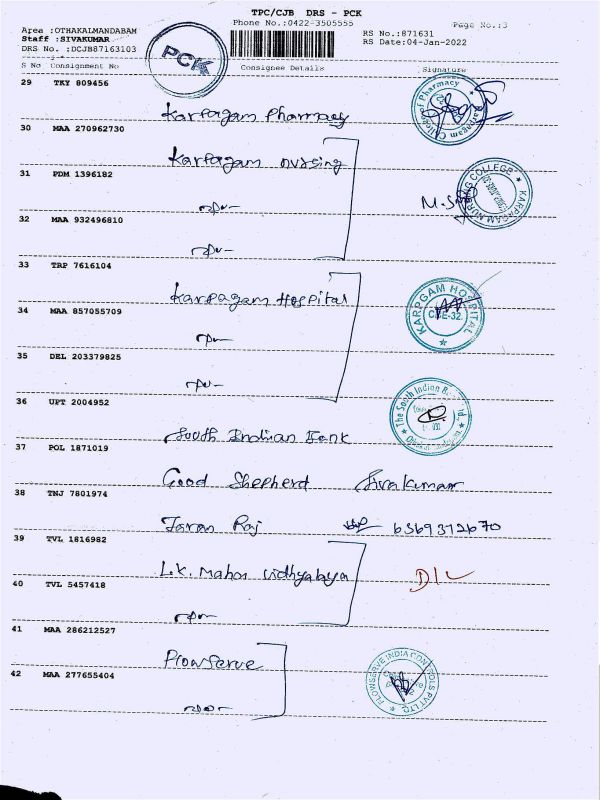 TPC/CJB DRS - PCK
Phone No.:0422-3505555
Page No.:3
Area :OTHAKALMANDABAM
Staff :SIVAKUMAR
DRS No. :DCJB87163103
PCK
RS No.:871631
RS Date:04-Jan-2022
S No Consignment No Consignee Details Signature
29 TKY 809456
Karpagam Pharmacy
30 MAA 270962730
Karpagam nursing
31 PDM 1396182
32 MAA 932496810
33 TRP 7616104
Karpagam Hospital
34 MAA 857055709
35 DEL 203379825
36 UPT 2004952
South Indian Bank
37 POL 1871019
Good Shepherd Sivakumar
38 TNJ 7801974
Taran Raj 6369312670
39 TVL 1816982
L.K. Mahar Vidhyalaya D/L
40 TVL 5457418
41 MAA 286212527
Plowserve
42 MAA 277655404
Karpagam College of Pharmacy
KARPAGAM NURSING COLLEGE
KARPGAM HOSPITAL
CBE-32.
The South Indian
FLOWSERVE INDIA CONTROLS PVT LTD.